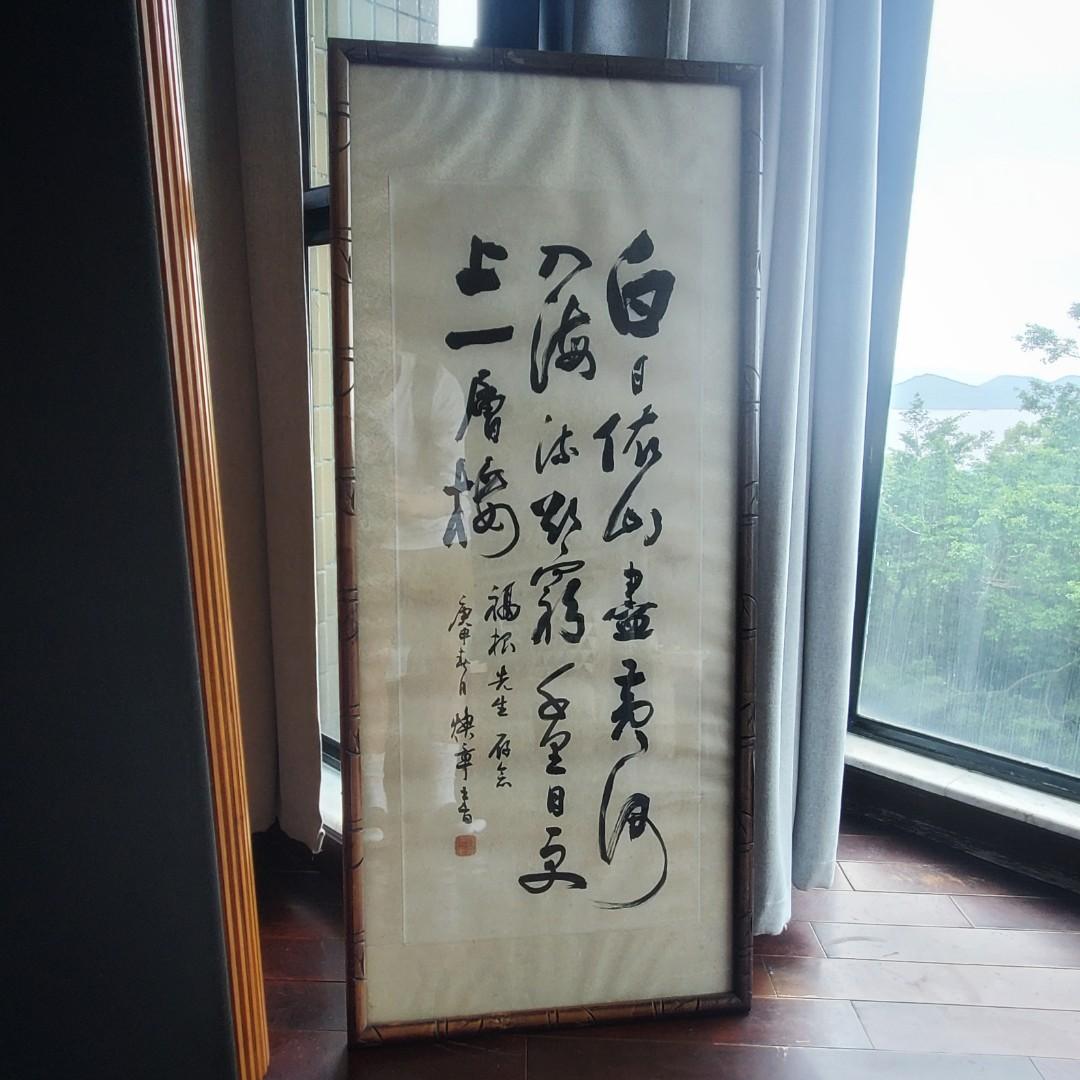 白日依山盡黃河
入海流欲窮千里目更
上一層樓
福根先生存念
庚申春日 煥章書